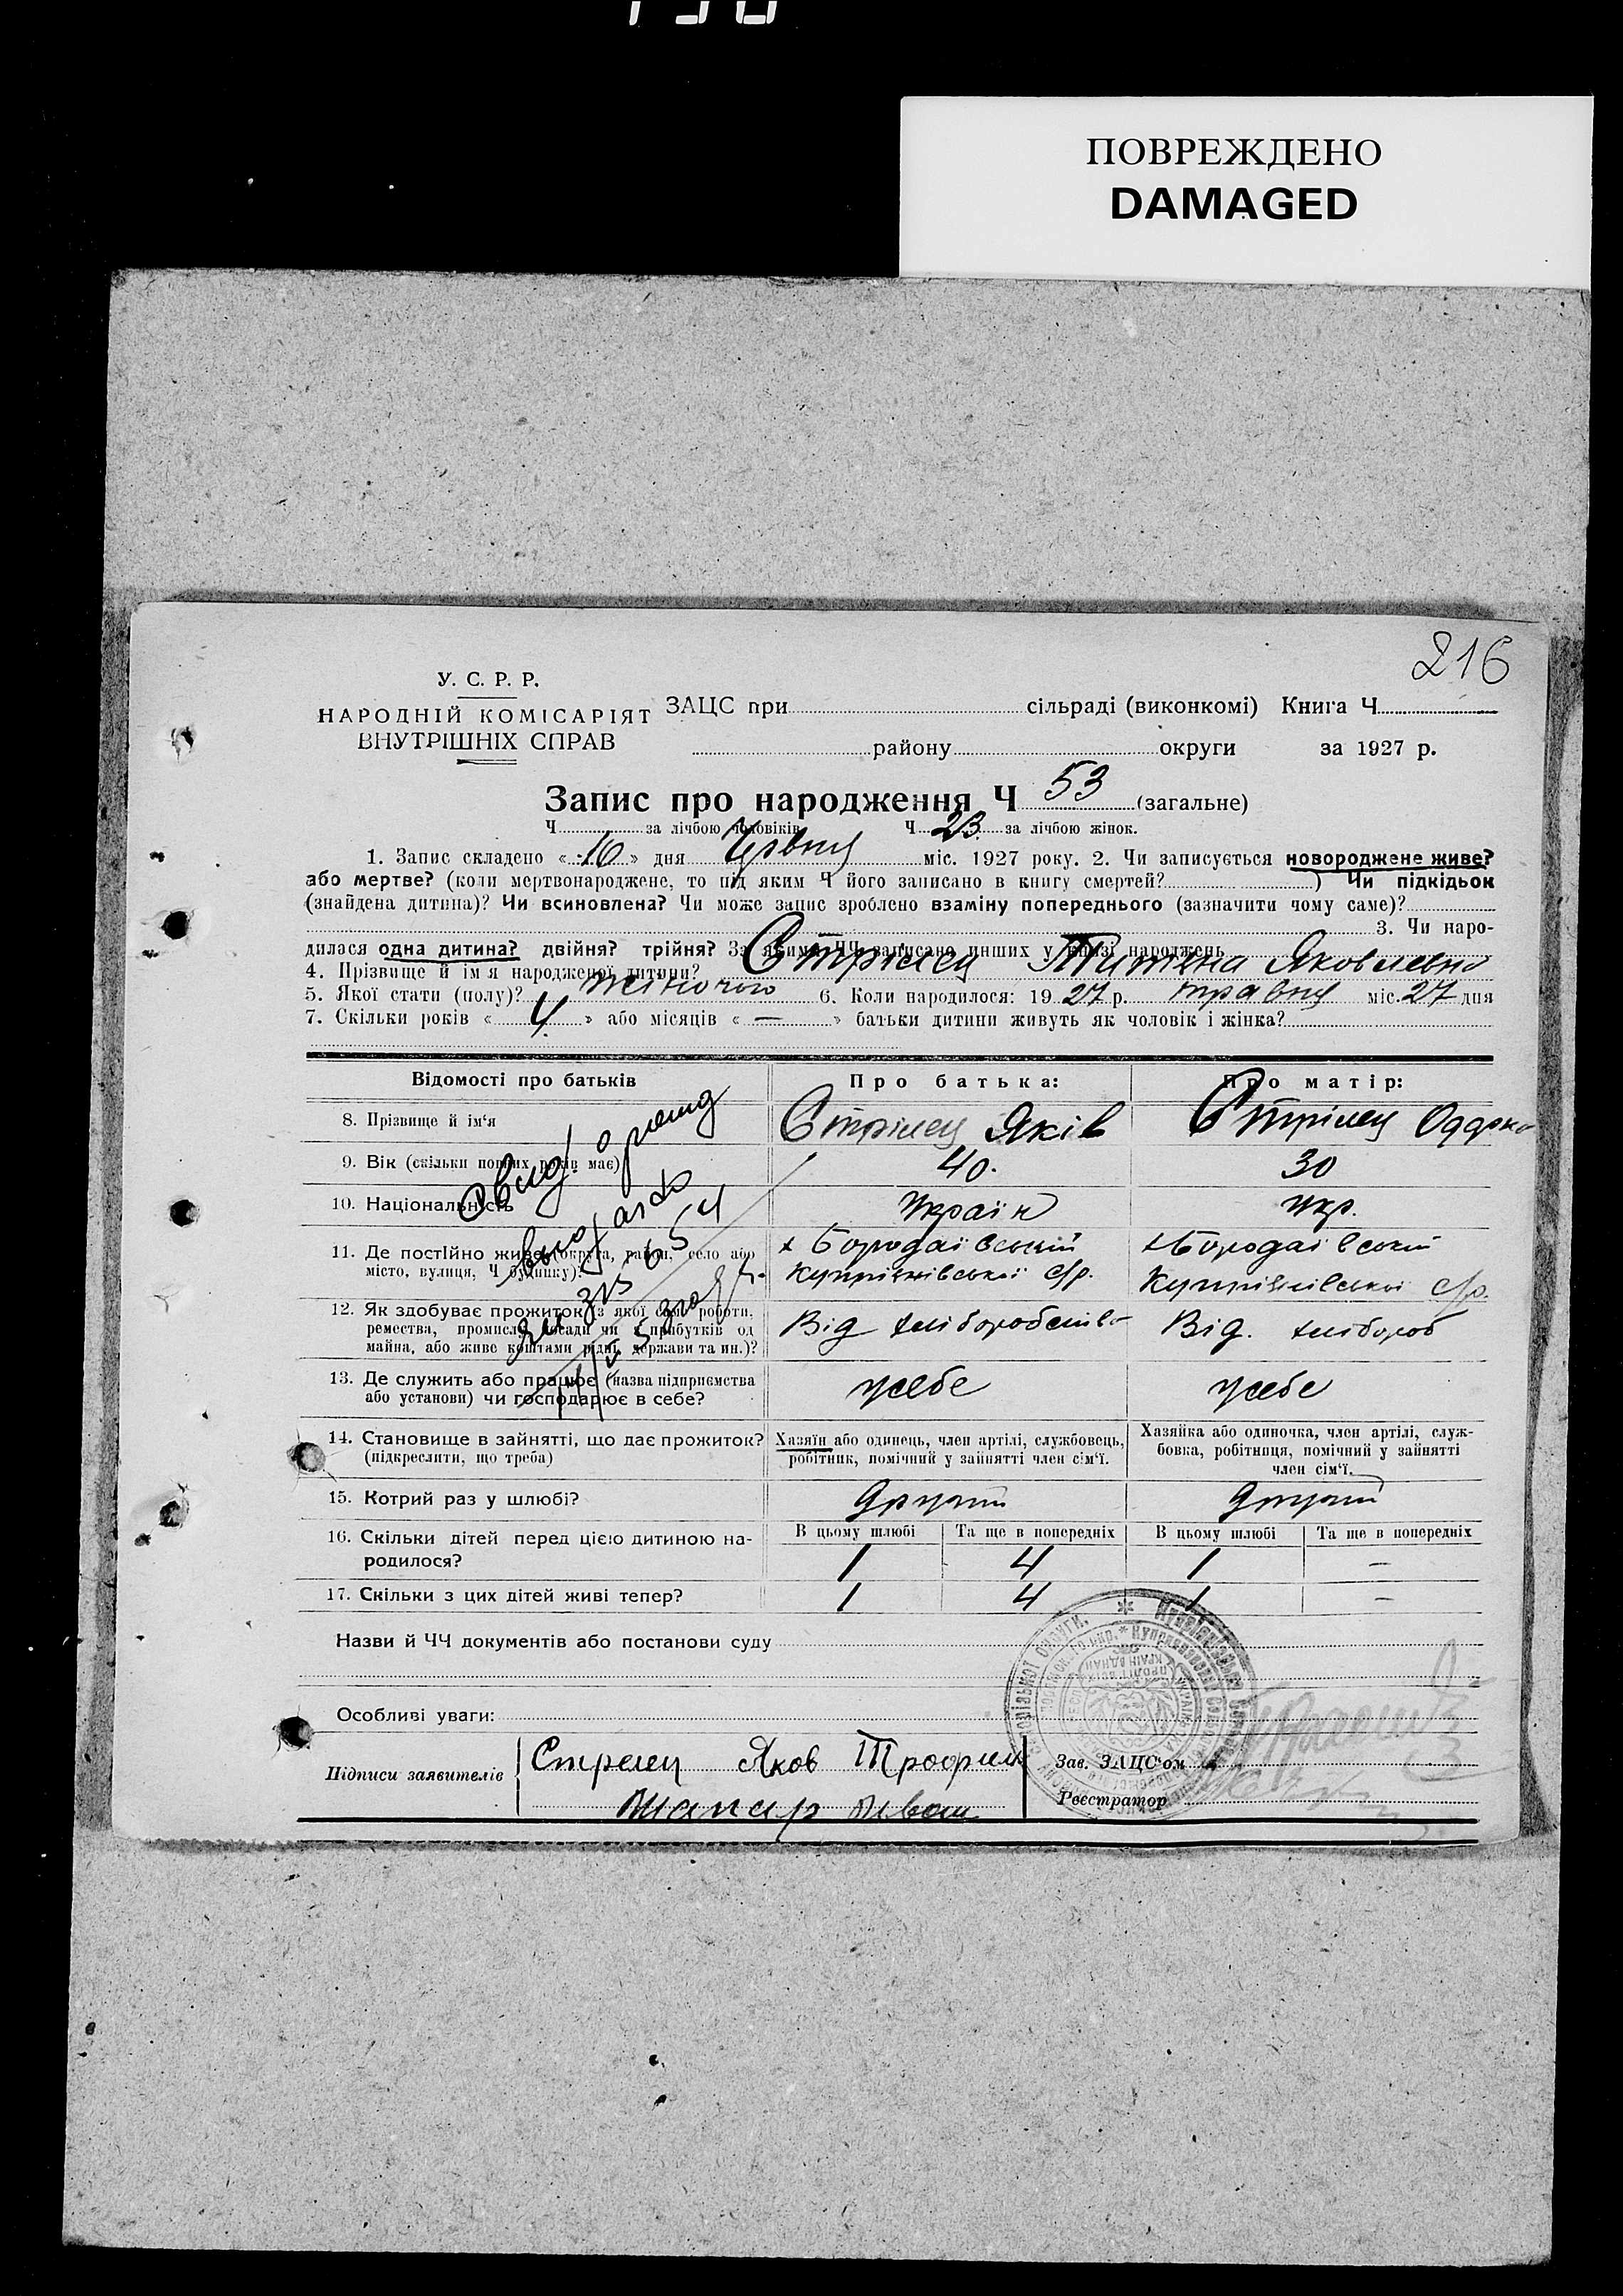 ПОВРЕЖДЕНО
DAMAGED
216
У. С. Р. Р.
НАРОДНІЙ КОМІСАРІЯТ
ВНУТРІШНІХ СПРАВ
ЗАЦС при сільраді (виконкомі) Книга Ч
району округи за 1927 р.
Запис про народження Ч 53 (загальне)
Ч за лічбою чоловіків Ч 23 за лічбою жінок.
1. Запис складено « 16 » дня Червня міс. 1927 року. 2. Чи записується новороджене живе?
або мертве? (коли мертвонароджене, то під яким Ч його записано в книгу смертей? ) Чи підкідьок
(знайдена дитина)? Чи всиновлена? Чи може запис зроблено взаміну попереднього (зазначити чому саме)?
3. Чи наро-
дилася одна дитина? двійня? трійня? За якими ЧЧ записано инших у книзі народжень
4. Прізвище й ім'я народженої дитини? Стрілец Титяна Яковлевна
5. Якої стати (полу)? жіночого 6. Коли народилося: 19 27 р. травня міс. 27 дня
7. Скільки років « 4 » або місяців « — » батьки дитини живуть як чоловік і жінка?
Відомості про батьків Про батька: Про матір:
8. Прізвище й ім'я Стрілец Яків Стрілец Оддока
9. Вік (скільки повних років має) 40. 30
10. Національність Україн Укр.
11. Де постійно живе (округа, район, село або
місто, вулиця, Ч будинку)?
х Бородаївський х Бородаївський
Купріянівської с/р. Купріянівської с/р.
12. Як здобуває прожиток (з якої саме роботи,
ремества, промислу, посади чи з прибутків од
майна, або живе коштами рідні, держави та ин.)?
Від хліборобства Від. хлібороб
13. Де служить або працює (назва підприємства
або установи) чи господарює в себе?
усебе усебе
14. Становище в зайнятті, що дає прожиток?
(підкреслити, що треба)
Хазяїн або одинець, член артілі, службовець,
робітник, помічний у зайнятті член сім'ї.
Хазяйка або одиночка, член артілі, служ-
бовка, робітниця, помічний у зайнятті
член сім'ї.
15. Котрий раз у шлюбі? Другий Другий
16. Скільки дітей перед цією дитиною на-
родилося?
В цьому шлюбі Та ще в попередніх В цьому шлюбі Та ще в попередніх
1 4 1 –
17. Скільки з цих дітей живі тепер? 1 4 1 –
Назви й ЧЧ документів або постанови суду
Особливі уваги:
Підписи заявителів Стрелец Яков Трофим
Зав. ЗАЦС'ом
Реєстратор